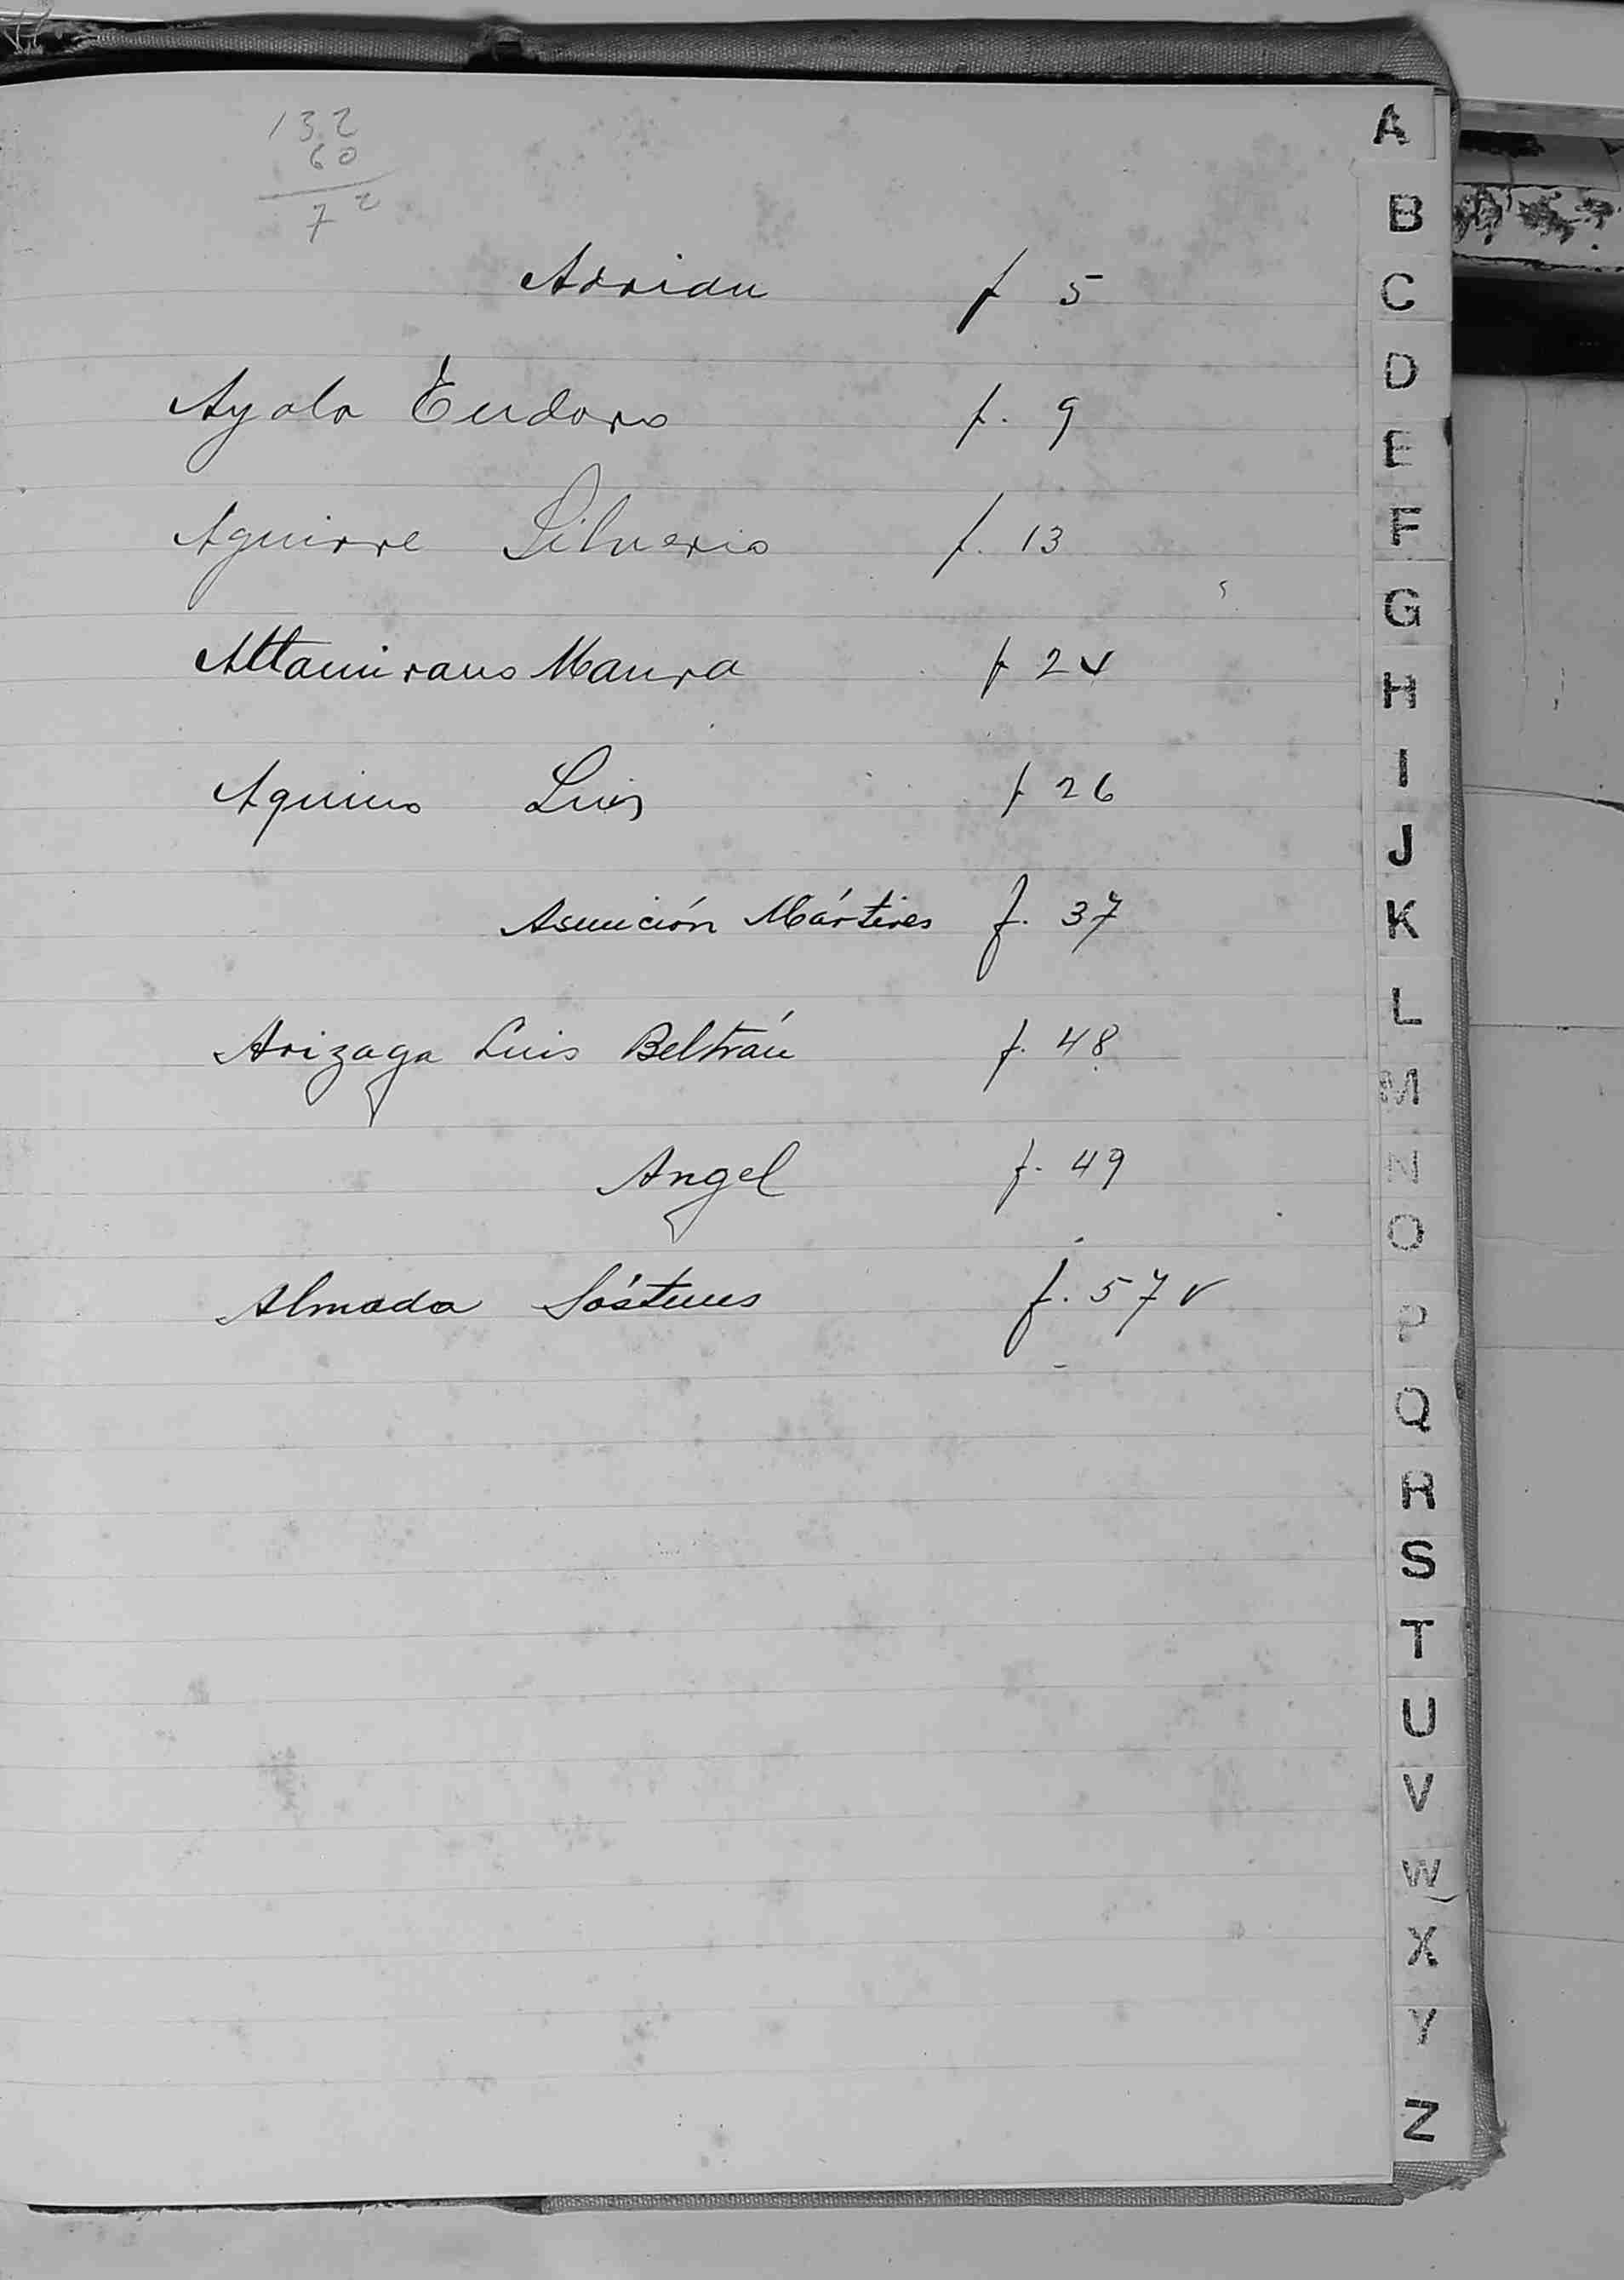 132
60
72
Adrian f 5
Ayala Eudoro f. 9
Aguirre Silverio f. 13
Altamirano Maura f 2v
Aquino Luis f 26
Asunción Mártires f. 37
Arizaga Luis Beltrán f. 48
Angel f. 49
Almada Sóstenes f. 57 v
A
B
C
D
E
F
G
H
I
J
K
L
M
N
O
P
Q
R
S
T
U
V
W
X
Y
Z